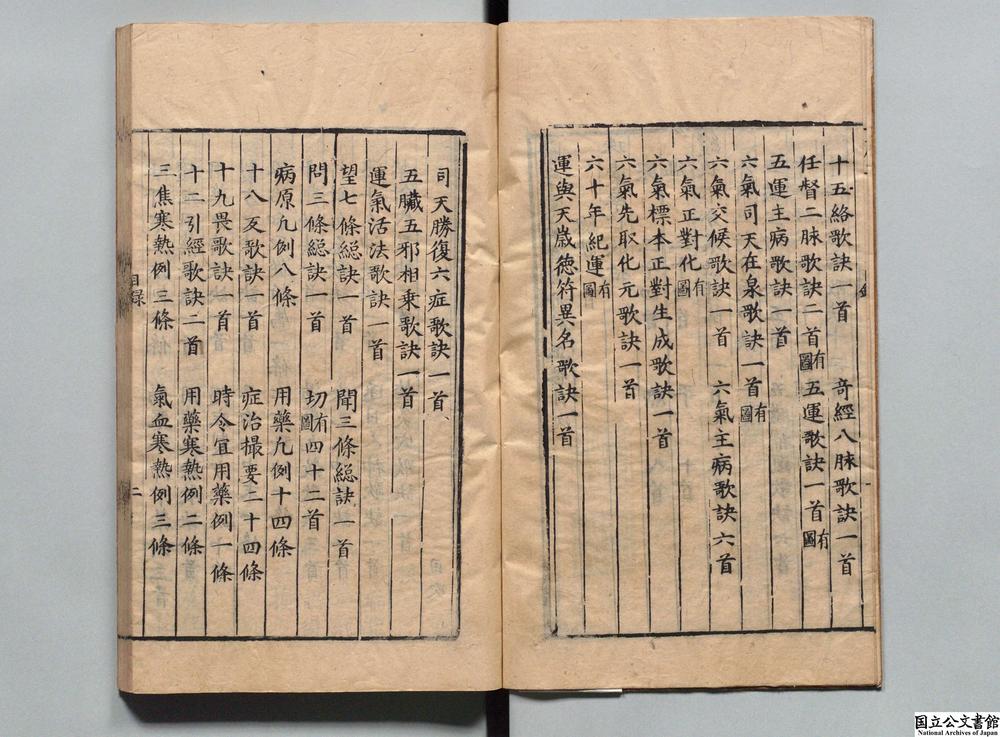 十五絡歌訣一首　奇經八脉歌訣一首
任督二脉歌訣二首有圖　五運歌訣一首有圖
五運主病歌訣一首
六氣司天在泉歌訣一首有圖
六氣交候歌訣一首　六氣主病歌訣六首
六氣正對化有圖
六氣標本正對生成歌訣一首
六氣先取化元歌訣一首
六十年紀運有圖
運與天歲德符異名歌訣一首
司天勝復六症歌訣一首
五臟五邪相乗歌訣一首
運氣活法歌訣一首
望七條總訣一首　聞三條總訣一首
問三條總訣一首　切有圖四十二首
病原九例八條　用藥九例十四條
十八反歌訣一首　症治撮要二十四條
十九畏歌訣一首　時令宜用藥例一條
十二引經歌訣二首　用藥寒熱例二條
三焦寒熱例三條　氣血寒熱例三條
目録
二
国立公文書館
National Archives of Japan